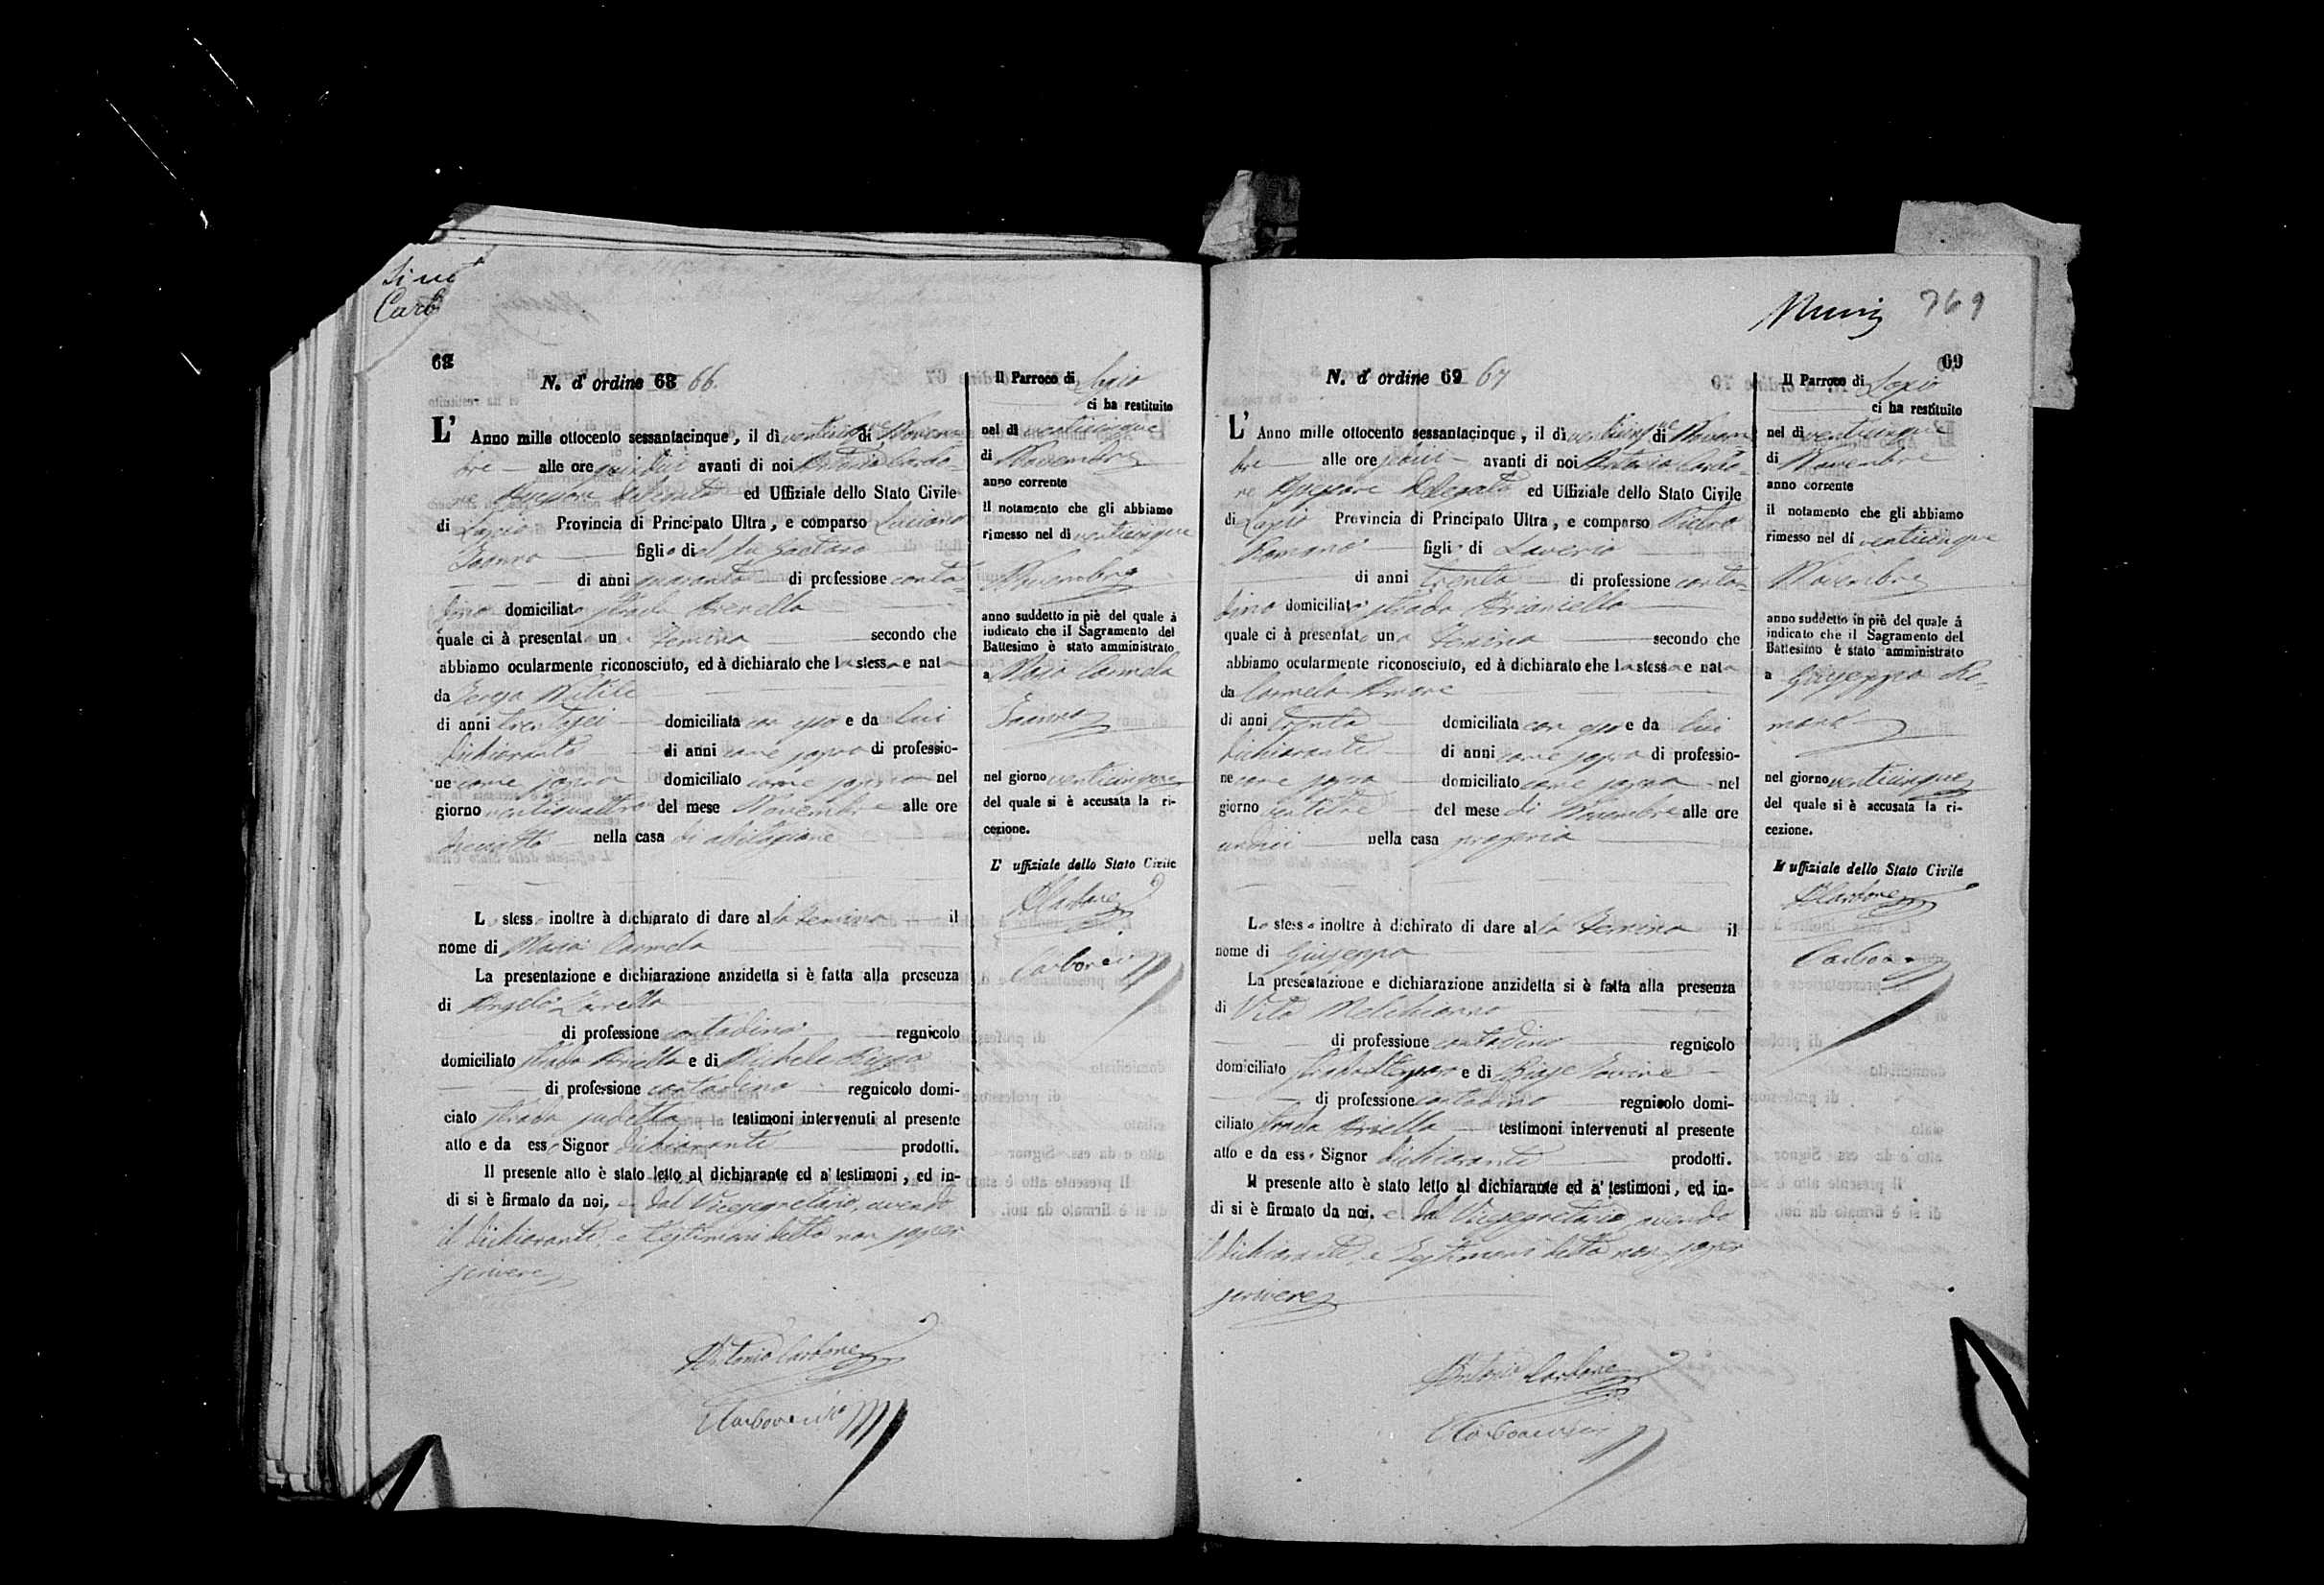 Carb
68
N. d' ordine 68 66.
L' Anno mille ottocento sessantacinque, il dì venticinque di Novem
bre alle ore quindici avanti di noi Antonio Carbo-
ne Assessore Delegato ed Uffiziale dello Stato Civile
di Provincia di Principato Ultra, e comparso Luciano
figlio di del fu Gaetano
di anni quaranta di professione conta
dino domiciliato strada
quale ci à presentat un femina secondo che
abbiamo ocularmente riconosciuto, ed à dichiarato che la stessa e nata
da Teresa
di anni trentasei domiciliata con esso e da lui
dichiarante di anni come sopra di professio-
ne come sopra domiciliato come sopra nel
giorno ventiquattro del mese Novembre alle ore
diciotto nella casa di abitazione
Lo stesso inoltre à dichiarato di dare alla femina il
nome di Maria Carmela
La presentazione e dichiarazione anzidetta si è fatta alla presenza
di Angelo
di professione contadino regnicolo
domiciliato strada e di Michele
di professione contadino regnicolo domi-
ciato strada sudetta testimoni intervenuti al presente
atto e da esso Signor dichiarante prodotti.
Il presente atto è stato letto al dichiarante ed a' testimoni, ed in-
di si è firmato da noi, e dal Vicesegretario, avendo
il dichiarante, e testimoni detto non saper
scrivere
Antonio Carbone
Il Parroco di
ci ha restituito
nel dì venticinque
di Novembre
anno corrente
il notamento che gli abbiamo
rimesso nel dì venticinque
Novembre
anno suddetto in piè del quale á
iudicato che il Sagramento del
Battesimo è stato amministrato
a Maria Carmela
nel giorno venticinque
del quale si è accusata la ri-
cezione.
L' uffiziale dello Stato Civile
A Carbone
769
69
N. d' ordine 69 67
L' Anno mille ottocento sessantacinque, il dì venticinque di Novem
bre alle ore avanti di noi Antonio Carbo-
ne Assessore Delegato ed Uffiziale dello Stato Civile
di Provincia di Principato Ultra, e comparso Pietro
Romano figlio di Saverio
di anni trenta di professione conta-
dino domiciliato strada
quale ci à presentato una femina secondo che
abbiamo ocularmente riconosciuto, ed à dichiarato che la stessa e nata
da Carmela
di anni trenta domiciliata con esso e da lui
dichiarante di anni come sopra di professio-
ne come sopra domiciliato come sopra nel
giorno ventitre del mese di Novembre alle ore
undici nella casa propria
Lo stesso inoltre à dichirato di dare alla femina il
nome di Giuseppa
La presentazione e dichiarazione anzidetta si è fatta alla presenza
di Vito Melchionno
di professione contadino regnicolo
domiciliato strada e di Biase Iovine
di professione contadino regnicolo domi-
ciliato strada testimoni intervenuti al presente
atto e da esso Signor dichiarante prodotti.
Il presente atto è stato letto al dichiarante ed a' testimoni, ed in-
di si è firmato da noi, e dal Vicesegretario, avendo
il dichiarante, e testimoni detto non saper
scrivere
Antonio Carbone
Il Parroco di
ci ha restituito
nel dì venticinque
di Novembre
anno corrente
il notamento che gli abbiamo
rimesso nel dì venticinque
Novembre
anno suddetto in piè del quale á
indicato che il Sagramento del
Battesimo è stato amministrato
a Giuseppa Ro-
mano
nel giorno venticinque
del quale si è accusata la ri-
cezione.
L' uffiziale dello Stato Civile
A Carbone